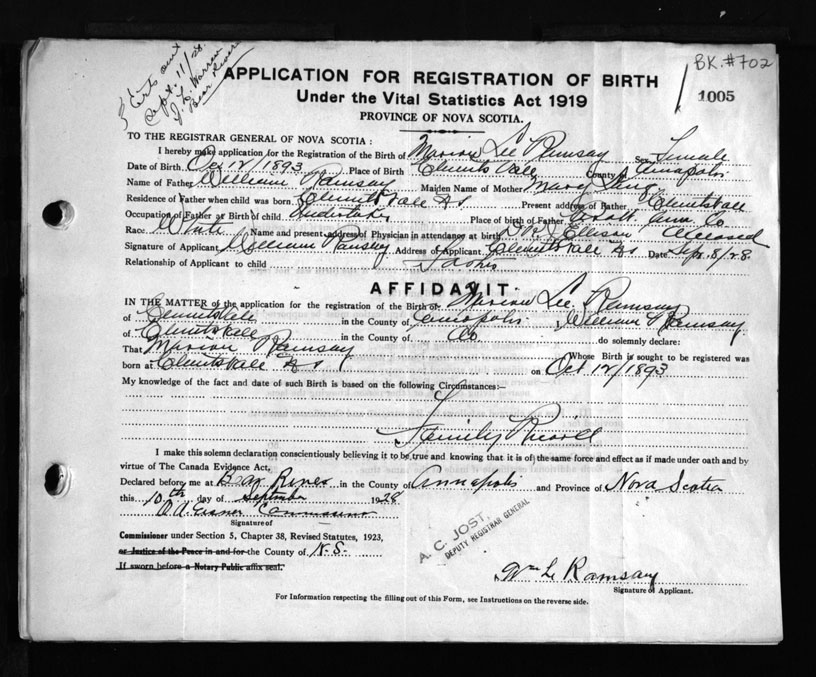 BK. #702
Sept. 11/28.
Bear River
APPLICATION FOR REGISTRATION OF BIRTH
1005
Under the Vital Statistics Act 1919
PROVINCE OF NOVA SCOTIA.
TO THE REGISTRAR GENERAL OF NOVA SCOTIA :
I hereby make application for the Registration of the Birth of Marion Lee Ramsay Sex Female
Date of Birth Oct 12/1893 Place of Birth Clements Vale County Annapolis
Name of Father William Ramsay Maiden Name of Mother Mary
Residence of Father when child was born Clements Vale N S Present address of Father Clementsvale
Occupation of Father at Birth of child Undertaker Place of birth of Father Ann. Co
Race White Name and present address of Physician in attendance at birth Dr Ellison deceased
Signature of Applicant William Ramsay Address of Applicant Clementsvale N S Date Sep. 8/28
Relationship of Applicant to child Father
AFFIDAVIT
IN THE MATTER of the application for the registration of the Birth of Marion Lee Ramsay
of Clementsvale in the County of Annapolis I, William Ramsay
of Clementsvale in the County of do solemnly declare:
That Marion Ramsay Whose Birth is sought to be registered was
born at Clementsvale N S on Oct 12/1893
My knowledge of the fact and date of such Birth is based on the following Circumstances:—
Family Record
I make this solemn declaration conscientiously believing it to be true and knowing that it is of the same force and effect as if made under oath and by
virtue of The Canada Evidence Act,
Declared before me at Bear River in the County of Annapolis and Province of Nova Scotia
this 10th day of September 1928
Signature of
Commissioner under Section 5, Chapter 38, Revised Statutes, 1923,
or Justice of the Peace in and for the County of N.S.
If sworn before a Notary Public affix seal.
A. C. JOST,
DEPUTY REGISTRAR GENERAL
Wm L Ramsay
Signature of Applicant.
For Information respecting the filling out of this Form, see Instructions on the reverse side.